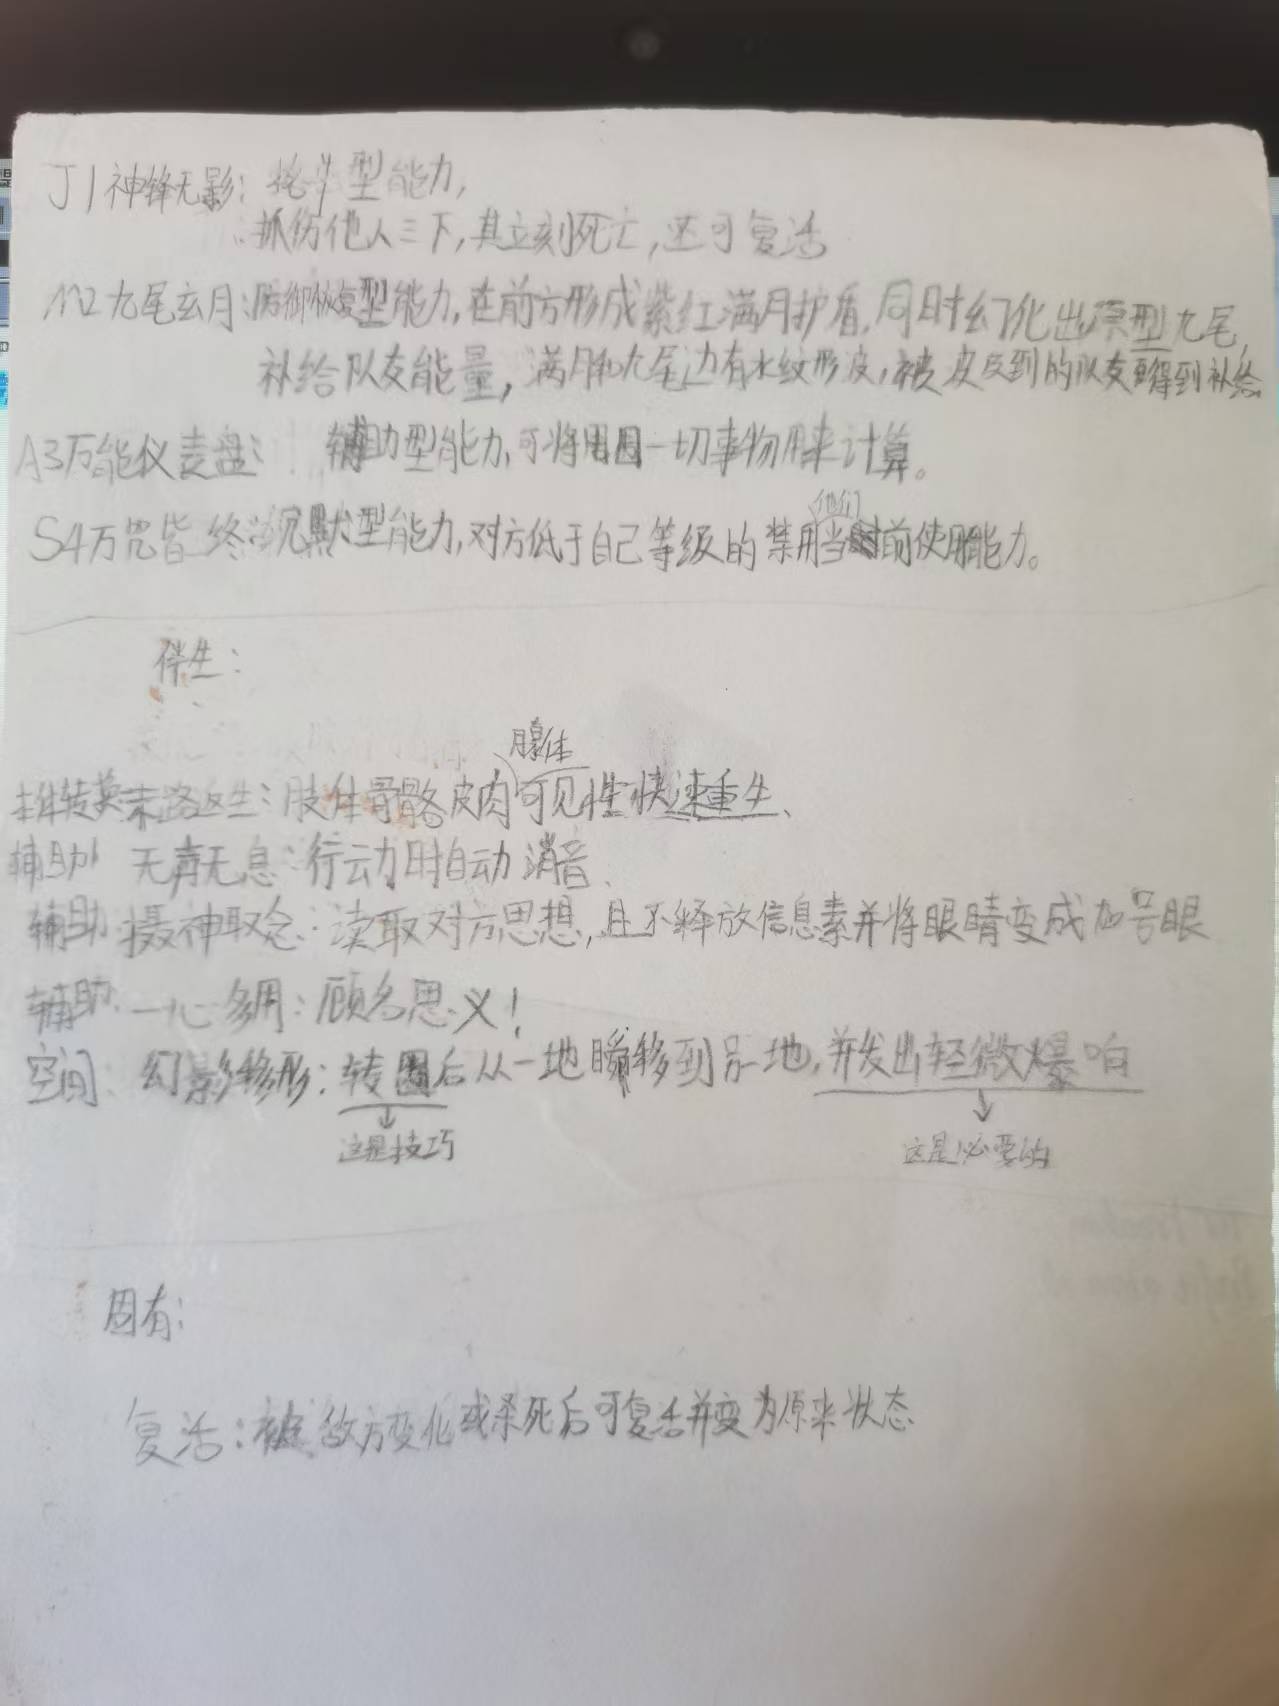 J1神锋无影：抢斗型能力,
抓伤他人三下,其立刻死亡,还可复活
M2九尾玄月:防御恢复型能力,在前方形成紫红满月护盾,同时幻化出原型九尾,
补给队友能量,满月和九尾边有水纹形波,被波及到的队友更得到补给
A3万能仪表盘: 辅助型能力,可将周围一切事物用来计算。
他们
S4万咒皆终:沉默型能力,对方低于自己等级的禁用当前使用能力。
伴生:
腺体
转换末路返生:肢体骨骼皮肉可见性快速重生、
辅助 无声无息:行动时自动消音、
辅助:摄神取念:读取对方思想,且不释放信息素并将眼睛变成加号眼
辅助:一心多用:顾名思义!
空间:幻影移形:转圈后从一地瞬移到另一地,并发出轻微爆响
这是技巧 这是必要的
固有:
复活:被敌方变化或杀死后可复活并变为原来状态